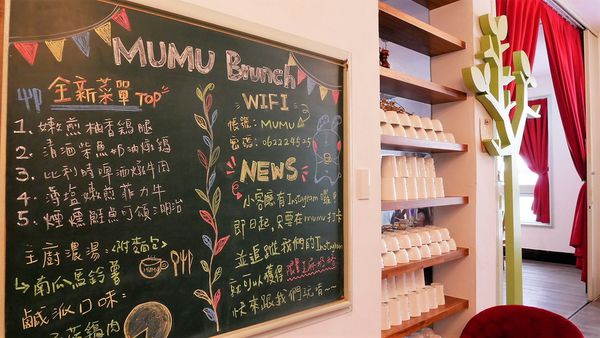 MUMU Brunch
全新菜單 TOP
1. 嫩煎柚香雞腿
2. 清酒柴魚奶油燉雞
3. 比利時啤酒燉牛肉
4. 海塩嫩煎菲力牛
5. 煙燻鮭魚可頌三明治
主廚濃湯:(附麵包)
↳南瓜馬鈴薯
鹹派口味:
雞肉
WIFI
帳號: MUMU
密碼: 062224525
NEWS
小客廳有Instagram囉!
即日起,只要在mumu打卡
並追蹤我們的Instagram
就可以獲得
快來跟我們玩~~